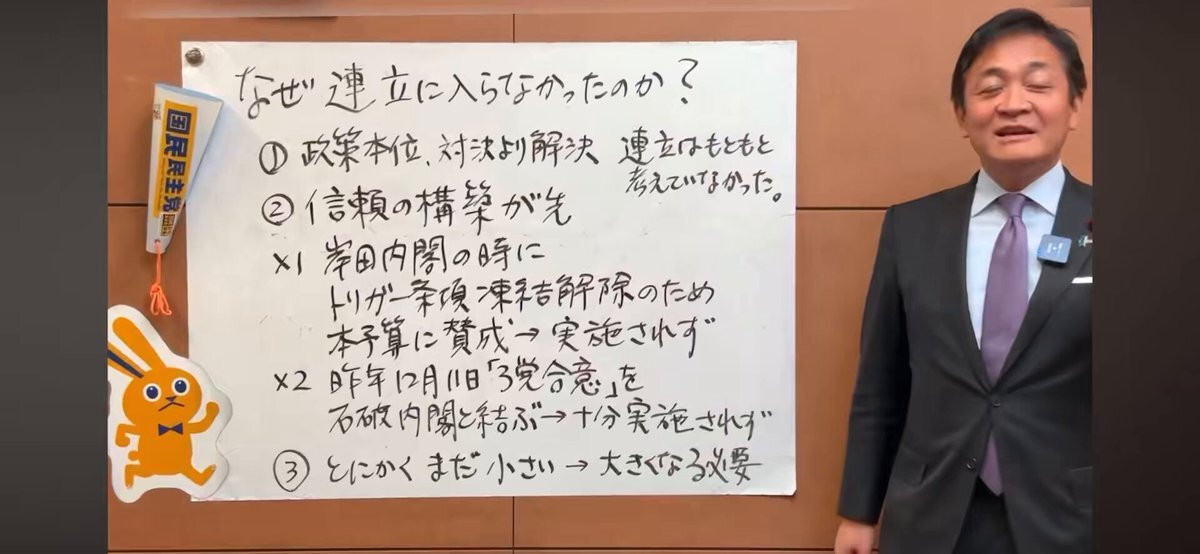 なぜ連立に入らなかったのか?
① 政策本位、対決より解決 連立はもともと
考えていなかった。
② 信頼の構築が先
×1 岸田内閣の時に
トリガー条項凍結解除のため
本予算に賛成→実施されず
×2 昨年12月11日「3党合意」を
石破内閣と結ぶ→十分実施されず
③ とにかくまだ小さい→大きくなる必要
国民民主党